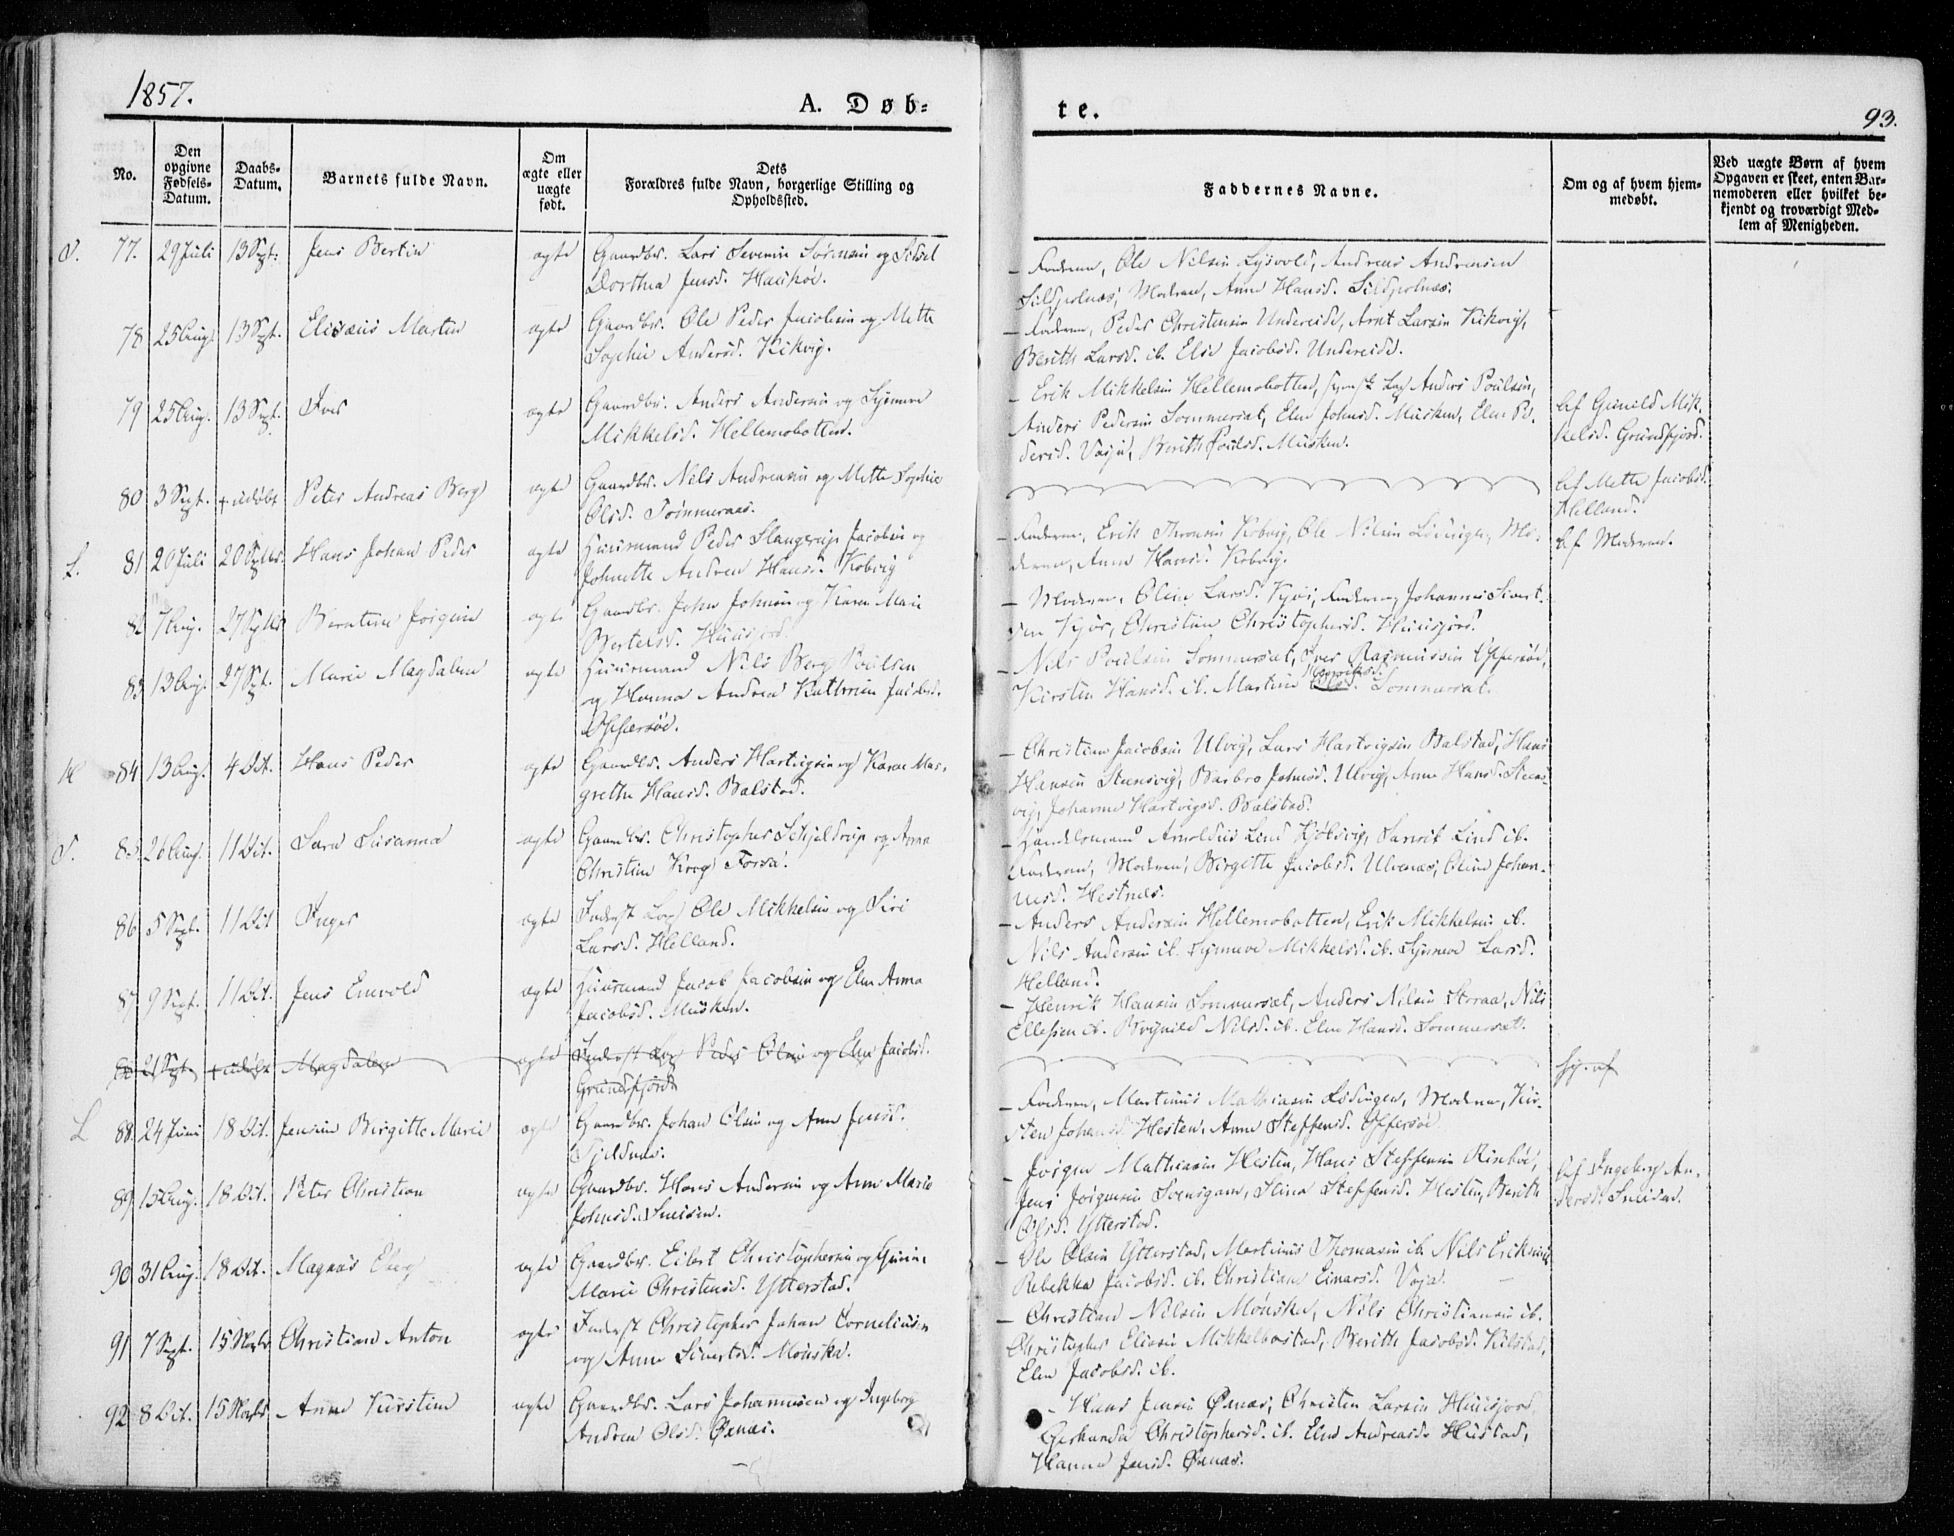 1857.
A. Døb=
te.
93.
No.
Den opgivne Fødsels-Datum.
Daabs-Datum.
Barnets fulde Navn.
Om ægte eller uægte født.
Dets Forældres fulde Navn, borgerlige Stilling og Opholdssted.
Faddernes Navne.
Om og af hvem hjem-
medøbt.
Ved uægte Børn af hvem
Opgaven er skeet, enten Bar-
nemoderen eller hvilket be-
kjendt og troværdigt Med-
lem af Menigheden.
77. 29 Juli 13 Sept. Jens Bertin ægte Gaardbr. Lars Severin Sørensen og Sidsel
Dorthea Jensd. Haukøe.
– Faderen, Ole Nilsen Lysvold, Andreas Andreasen
Sildpolnæs, Moderen, Anne Hansd. Sildpolnæs.
78 25 Aug. 13 Sept. Elisæus Martin ægte Gaardbr. Ole Peder Jacobsen og Mette
Sophie Andersd. Kikvig.
– Faderen, Peder Christensen Undereidet, Arnt Larsen Kikvig,
Berith Larsd. ib. Else Jacobsd. Undereidet.
79 25 Aug. 13 Sept. Iver ægte Gaardbr. Anders Andersen og Synneve
Mikkelsd. Hellemobotten.
– Erik Mikkelsen Hellemobotten, svensk Lap Anders Poulsen,
Anders Pedersen Sommerset, Elen Johnsd. Musken, Elen Pe-
dersd. Vaja, Berith Poulsd. Musken.
Af Gunild Mik-
kelsd. Grundfjord.
80 3 Sept. + udøbt Peter Andreas Berg ægte Gaardbr. Nils Andreasen og Mette Sophie
Olsd. Tømmeraas.
Af Mette Jacobsd.
Helland.
L. 81 20 Juli 20 Septbr. Hans Johan Peder ægte Huusmand Peder Slangerup Jacobsen og
Johnette Andrea Hansd. Kobvig
– Faderen, Erik Thronsen Kobvig, Ole Nilsen Lødingen, Mo-
deren, Anne Hansd. Kobvig.
Af Moderen.
82 7 Aug. 27 Septbr Berntine Jørgine ægte Gaardbr. John Johnsen og Karen Marie
Bertelsd. Huusjord.
– Moderen, Oline Larsd. Kjør, Faderen, Johannes Sivert-
sen Kjør, Christine Christophersd. Huusjord.
83 13 Aug. 27 Sept. Marie Magdalene ægte Huusmand Nils Berg Poulsen
og Hanna Andrea Kathrine Jacobsd.
Offersøe.
– Nils Poulsen Sommerset, Iver Rasmussen Offersøe,
Kirsten Hansd. ib. Martine Henriksd. Sommerset.
84 13 Aug. 4 Oct. Hans Peder ægte Gaardbr. Anders Hartvigsen og Karen Mar-
grethe Hansd. Balstad.
– Christian Jacobsen Ulvig, Lars Hartvigsen Balstad, Hans
Hansen Steensvig, Barbro Johnsd. Ulvig, Anne Hansd. Steens-
vig, Johanne Hartvigsd. Balstad.
85 26 Aug. 11 Oct. Sara Susanna ægte Gaardbr. Christopher Schjeldrup og Anna
Christine Krog Forsa.
– Handelsmand Arnoldus Lind Kjøbsvig, Lind ib.
Faderen, Moderen, Birgitte Jacobsd. Ulvenæs, Oline Johan-
nesd. Hestnæs.
86 5 Sept. 11 Oct Inger ægte Inderst Lap Ole Mikkelsen og Siri
Larsd. Helland.
– Anders Andersen Hellemobotten, Erik Mikkelsen ib.
Nils Andersen ib. Synneve Mikkelsd. ib. Synneve Larsd.
Helland.
87 9 Sept. 11 Oct. Jens Enevold ægte Huusmand Jacob Jacobsen og Elen Anna
Jacobsd. Musken.
– Henrik Hansen Sommerset, Anders Nilsen Storaa, Nils
Ellefsen ib. Brynild Nilsd. ib. Elen Hansd. Sommerset.
88 21 Sept. + udøbt Magdalena ægte Inderst Lap Peder Olsen og Elen Jacobsd.
Grundfjord
Hj. af
L 88. 24 Juni 18 Oct. Jensine Birgitte Marie ægte Gaardbr. Johan Olsen og Ane Jensd.
Tjeldnæs.
– Faderen, Martinus Mathiasen Lødingen, Moderen, Kir-
sten Johansd. Hesten, Anne Steffensd. Offersøe
89 15 Aug. 18 Oct. Peter Christian ægte Gaardbr. Hans Andersen og Ane Marie
Johnsd. Sneisen.
– Jørgen Mathiasen Hesten, Hans Steffensen Rinbøe,
Jens Jørgensen Svensgam, Stina Steffensd. Hesten, Berith
Olsd. Ytterstad.
Af Ingeborg An-
dersd. Sneisen.
90 31 Aug. 18 Oct. Magnus ægte Gaardbr. Eilert Christophersen og
Marie Christensd. Ytterstad.
– Ole Olsen Ytterstad, Martinus Thomasen ib. Nils Eriksen ib.
Rebekka Jacobsd. ib. Christiane Einarsd. Vaja.
91 7 Sept. 15 Novbr Christian Anton ægte Inderst Christopher Johan Cornelius-
og Anne Sivertsd. Mønsken.
– Christian Nilsen Mønsken, Nils Christiansen ib.
Christopher Eliasen Mikkelbostad, Berith Jacobsd. Kilstad,
Elen Jacobsd. ib.
92 8 Oct. 15 Novbr Anne Kirstine ægte Gaardbr. Lars Johannesen og Ingeborg
Andrea Olsd. Øxnæs.
– Hans Jensen Øxnæs, Christen Larsen Huusjord,
Christophersd. ib. Else Andreasd. Hustad,
Hanna Jensd. Øxnæs.